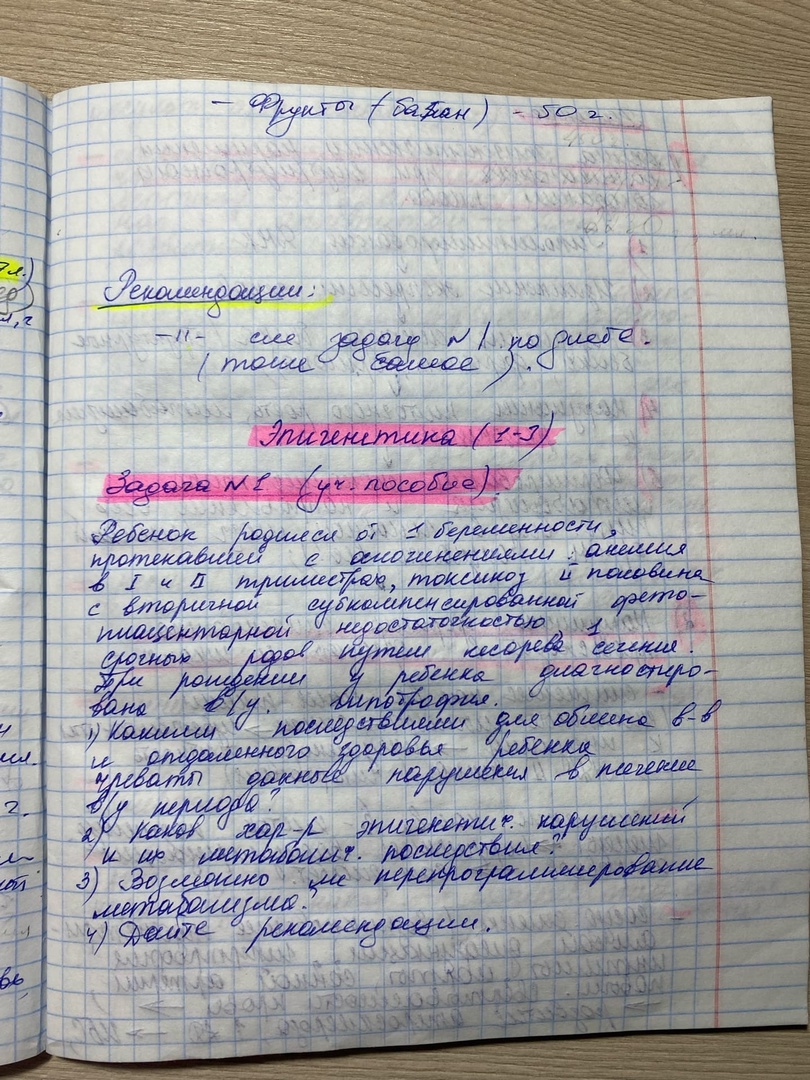 - Фрукты (банан) - 50 г.
Рекомендации:
-"- см задачу №1 по диете.
(тоже самое).
Эпигенетика (1-3)
Задача №1 (уч. пособие)
Ребенок родился от 1 беременности,
протекавшей с осложнениями: анемия
в I и II триместрах, токсикоз II половина
с вторичной субкомпенсированной фето-
плацентарной недостаточностью, 1
срочных родов путем кесарева сечения.
При рождении у ребенка диагностиро-
вана в/у. гипотрофия.
1) Какими последствиями для обмена в-в
и отдаленного здоровья ребенка
чреваты данные нарушения в течение
в/у периода?
2) Каков хар-р эпигенетич. нарушений
и их метаболич. последствия?
3) Возможно ли перепрограммирование
метаболизма?
4) Дайте рекомендации.